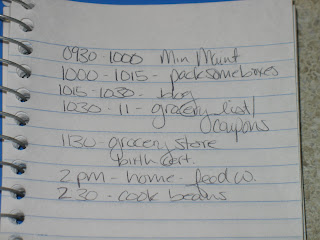 0930-1000 Min Maint
1000-1015- pack some boxes
1015-1030- blog
1030-11- grocery list/
coupons
1130-grocery store
birth cert.
2pm-home-food
230-cook beans